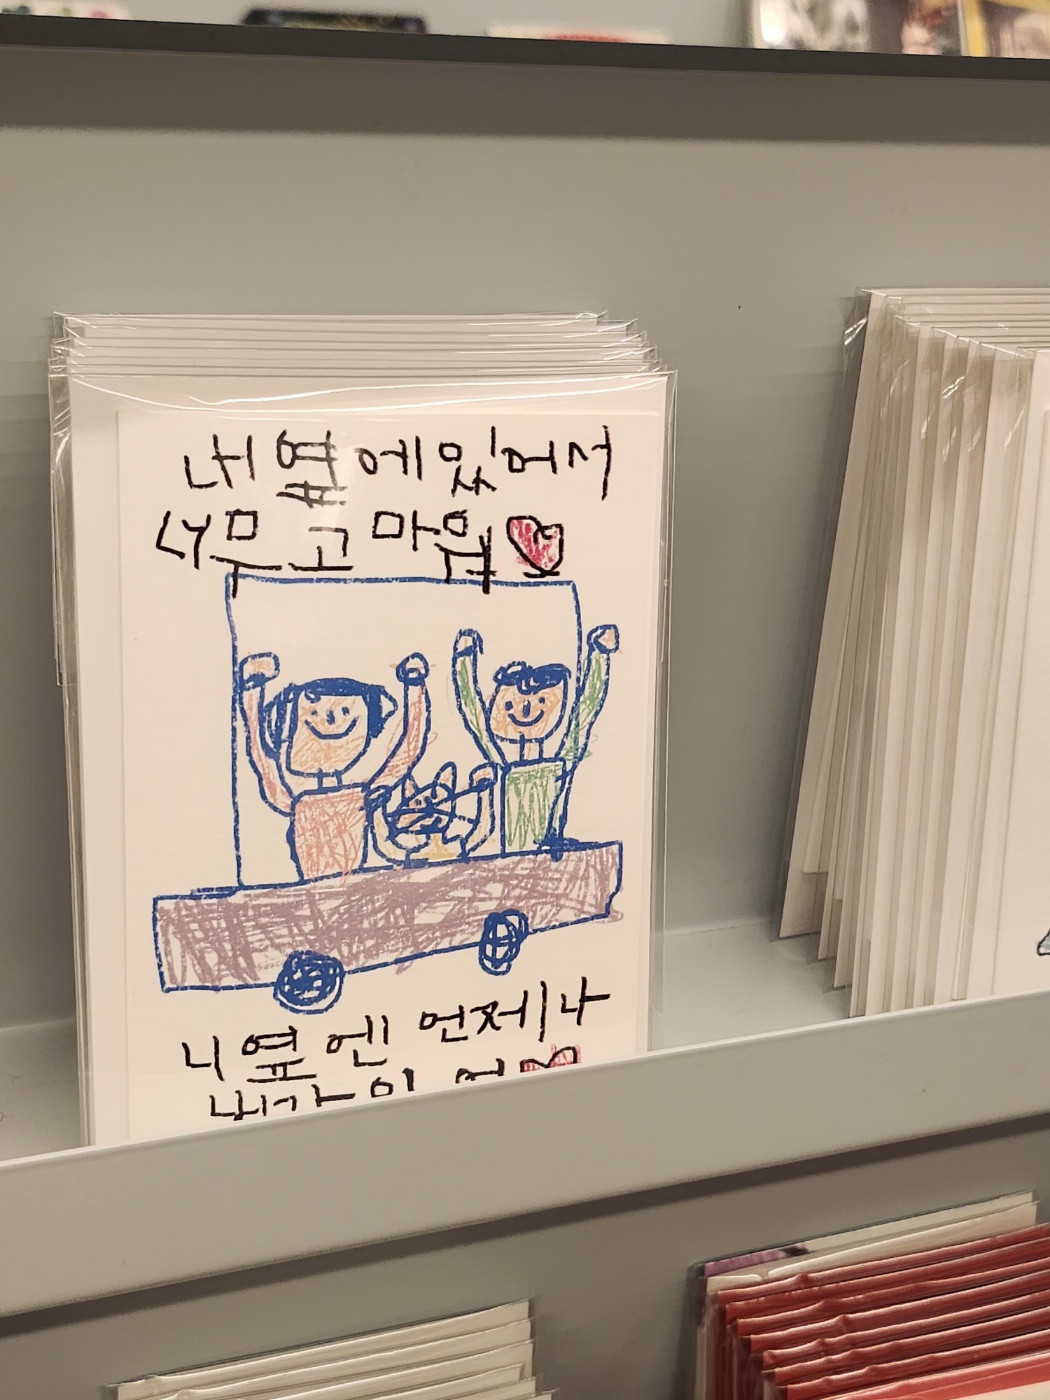 내 옆에 있어서
너무 고마워
니 옆엔 언제나
내가